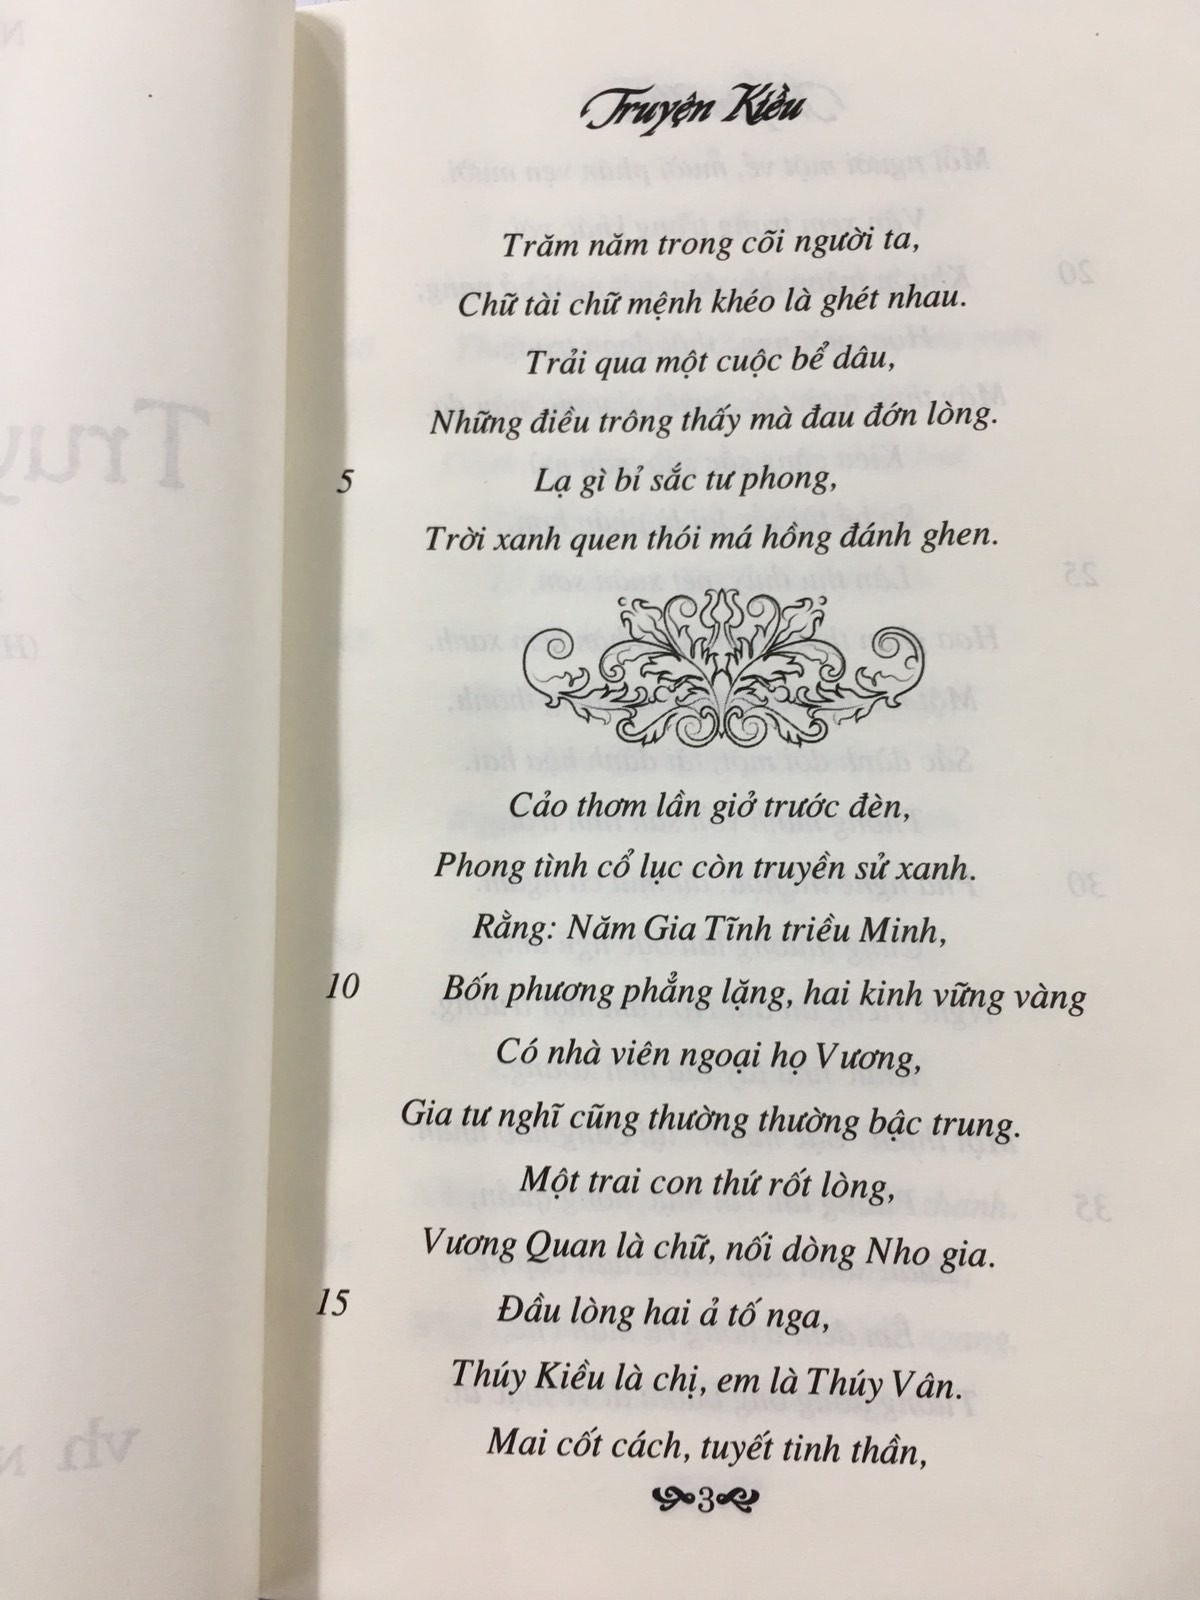 Truyện Kiều
Trăm năm trong cõi người ta,
Chữ tài chữ mệnh khéo là ghét nhau.
Trải qua một cuộc bể dâu,
Những điều trông thấy mà đau đớn lòng.
5 Lạ gì bỉ sắc tư phong,
Trời xanh quen thói má hồng đánh ghen.
Cảo thơm lần giở trước đèn,
Phong tình cổ lục còn truyền sử xanh.
Rằng: Năm Gia Tĩnh triều Minh,
10 Bốn phương phẳng lặng, hai kinh vững vàng
Có nhà viên ngoại họ Vương,
Gia tư nghĩ cũng thường thường bậc trung.
Một trai con thứ rốt lòng,
Vương Quan là chữ, nối dòng Nho gia.
15 Đầu lòng hai ả tố nga,
Thúy Kiều là chị, em là Thúy Vân.
Mai cốt cách, tuyết tinh thần,
3